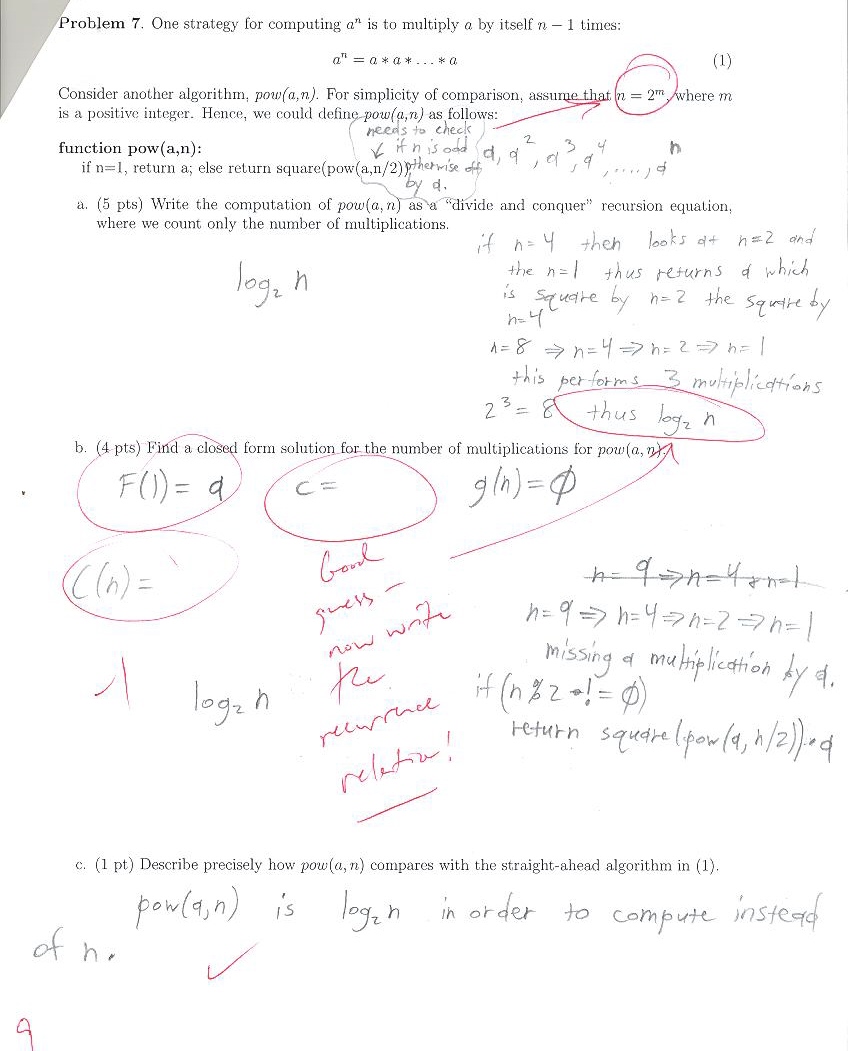 Problem 7. One strategy for computing aⁿ is to multiply a by itself n − 1 times:
aⁿ = a ∗ a ∗ . . . ∗ a (1)
Consider another algorithm, pow(a,n). For simplicity of comparison, assume that n = 2ᵐ, where m
is a positive integer. Hence, we could define pow(a,n) as follows:
needs to check
function pow(a,n):
if n is odd
a, a², a³, a⁴, ...., aⁿ
if n=1, return a; else return square(pow(a,n/2))
otherwise off
by a.
a. (5 pts) Write the computation of pow(a, n) as a “divide and conquer” recursion equation,
where we count only the number of multiplications.
log₂ n
if n=4 then looks at n=2 and
the n=1 thus returns a which
is square by n=2 the square by
n=4
n=8 ⇒ n=4 ⇒ n=2 ⇒ n=1
this performs 3 multiplications
2³ = 8 thus log₂ n
b. (4 pts) Find a closed form solution for the number of multiplications for pow(a, n).
F(1) = a
c =
g(n) = ϕ
C(n) =
Good
guess –
now write
the
recurrence
relation!
n=9 ⇒ n=4 n=1
n=9 ⇒ n=4 ⇒ n=2 ⇒ n=1
missing a multiplication by a.
if (n % 2 != ϕ)
return square(pow(a, n/2)) • a
log₂ n
c. (1 pt) Describe precisely how pow(a, n) compares with the straight-ahead algorithm in (1).
pow(a,n) is log₂n in order to compute instead
of n.
9